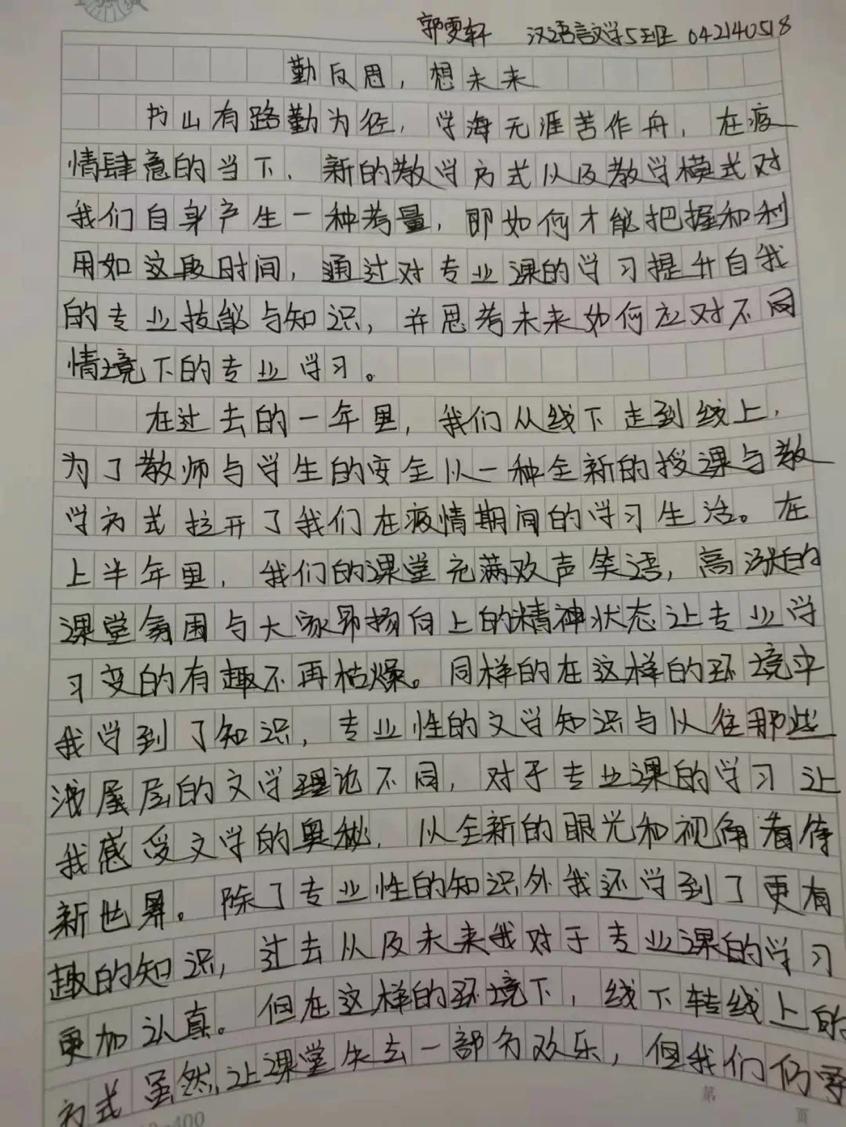 郭雯轩 汉语言文学5班 042140518
勤反思，想未来
书山有路勤为径，学海无涯苦作舟，在疫
情肆意的当下，新的教学方式以及教学模式对
我们自身产生一种考量，即如何才能把握和利
用如这段时间，通过对专业课的学习提升自我
的专业技能与知识，并思考未来如何应对不同
情境下的专业学习。
在过去的一年里，我们从线下走到线上，
为了教师与学生的安全以一种全新的授课与教
学方式拉开了我们在疫情期间的学习生活。在
上半年里，我们的课堂充满欢声笑语，高涨的
课堂氛围与大家昂扬向上的精神状态让专业学
习变的有趣不再枯燥。同样的在这样的环境中
我学到了知识，专业性的文学知识与以往那些
浅层的文学理论不同，对于专业课的学习让
我感受文学的奥秘，以全新的眼光和视角看待
新世界。除了专业性的知识外我还学到了更有
趣的知识，过去以及未来我对于专业课的学习
更加认真。但在这样的环境下，线下转线上的
方式虽然让课堂失去一部分欢乐，但我们仍
400 第 页